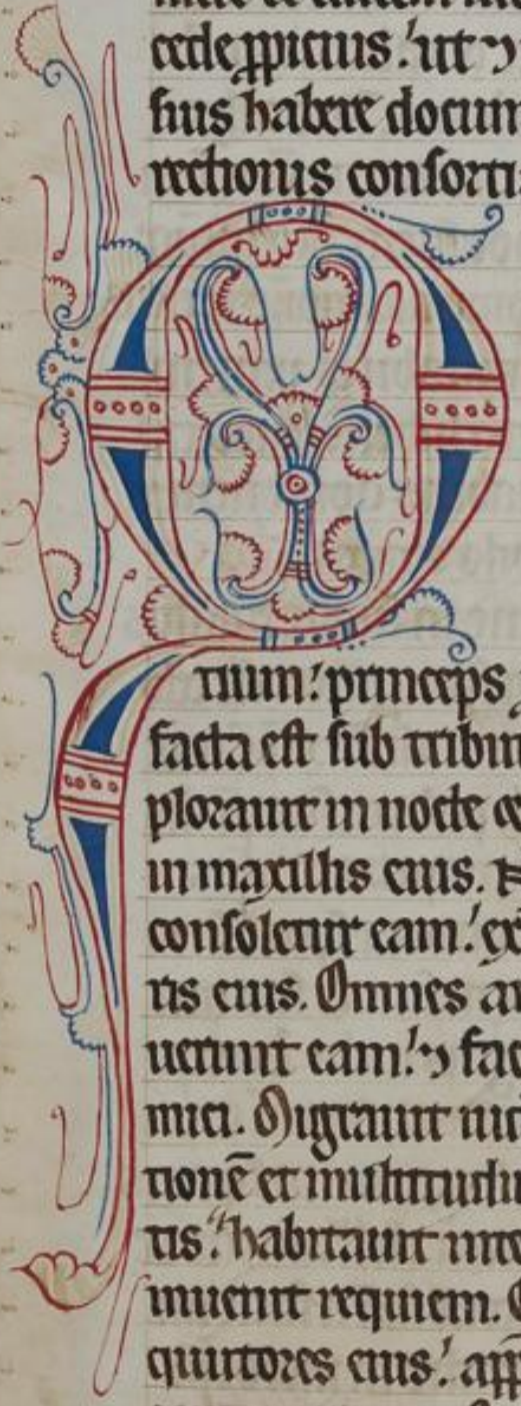 cede ppicius. ut ⁊
sius habere docum
rectionis consorti
Q
tium. princeps
facta est sub tribu
plorauit in nocte
in maxillis eius.
consoletur eam.
ris eius. Omnes a
uerunt eam. ⁊ fac
mici. Migrauit iu
tionē et multitudin
tis. habitauit inte
inuenit requiem.
quutores eius. app̄